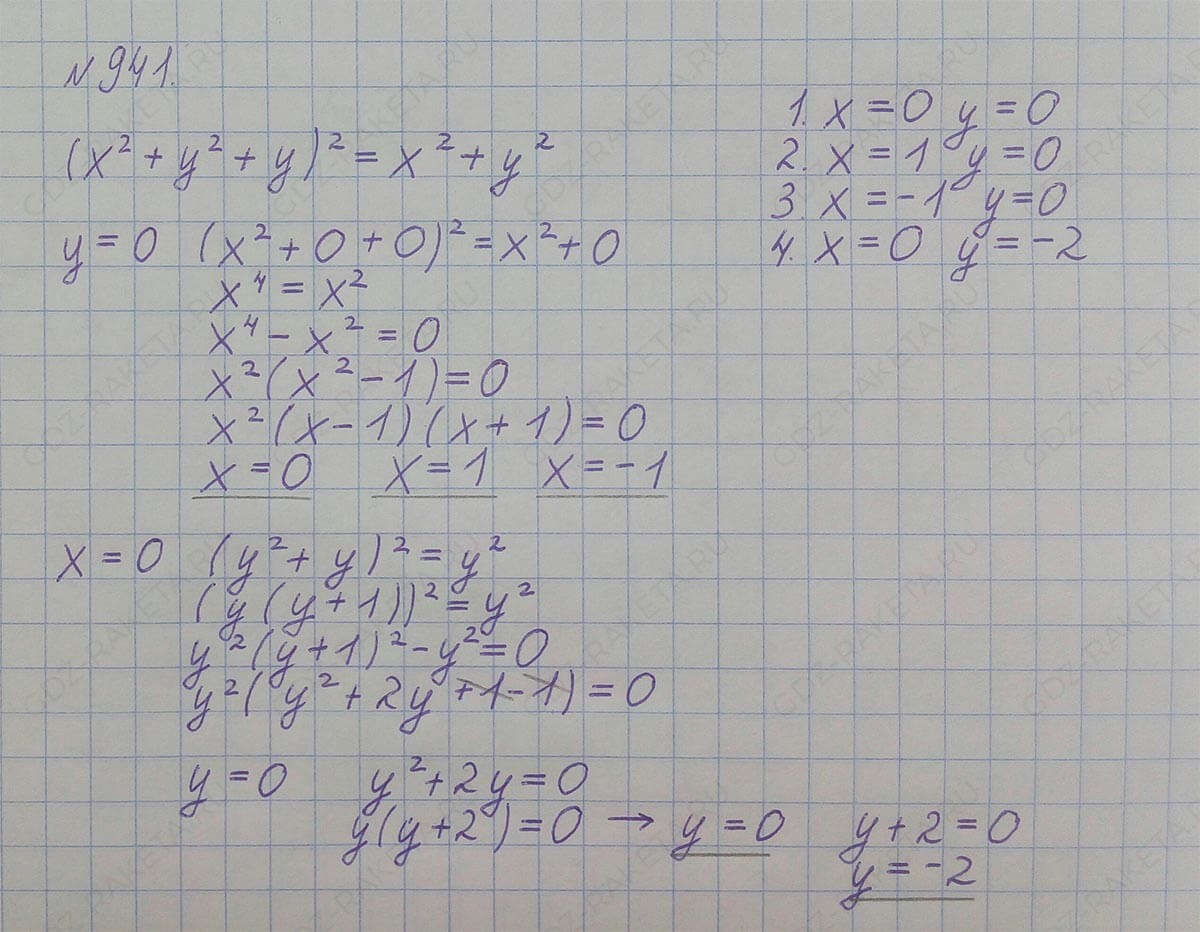 N941.
(x² + y² + y)² = x² + y²
y = 0 (x² + 0 + 0)² = x² + 0
x⁴ = x²
x⁴ - x² = 0
x²(x² - 1) = 0
x²(x - 1)(x + 1) = 0
x = 0 x = 1 x = -1
x = 0 (y² + y)² = y²
(y(y + 1))² = y²
y²(y + 1)² - y² = 0
y²(y² + 2y + 1 - 1) = 0
y = 0 y² + 2y = 0
y(y + 2) = 0 → y = 0 y + 2 = 0
y = -2
1. x = 0 y = 0
2. x = 1 y = 0
3. x = -1 y = 0
4. x = 0 y = -2
GDZ-RAKETA.RU